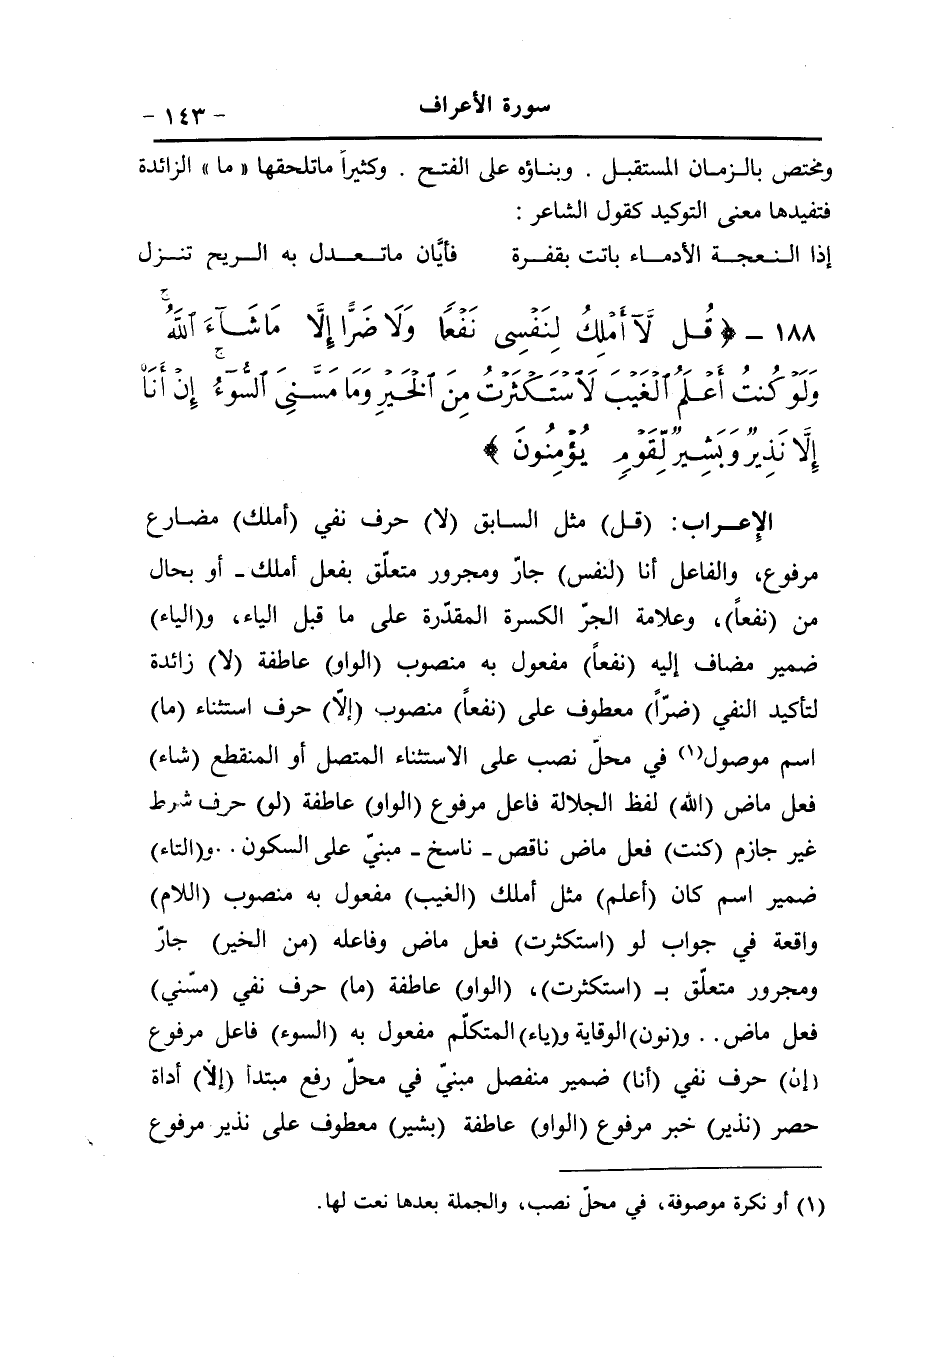 سورة الأعراف
- ١٤٣ -
وتختص بالـزمـان المستقبـل . وبناؤه على الفتح . وكثيراً ماتلحقها « ما » الزائدة
فتفيدها معنى التوكيد كقول الشاعر :
إذا النعجة الأدماء باتت بقفرة فأيَّان ماتعدل به الريح تنزل
١٨٨ - ﴿ قُل لَّآ أَمْلِكُ لِنَفْسِى نَفْعًا وَلَا ضَرًّا إِلَّا مَا شَآءَ ٱللَّهُ ۚ
وَلَوْ كُنتُ أَعْلَمُ ٱلْغَيْبَ لَٱسْتَكْثَرْتُ مِنَ ٱلْخَيْرِ وَمَا مَسَّنِىَ ٱلسُّوٓءُ ۚ إِنْ أَنَا۠
إِلَّا نَذِيرٌ وَبَشِيرٌ لِّقَوْمٍ يُؤْمِنُونَ ﴾
الإعراب: (قل) مثل السابق (لا) حرف نفي (أملك) مضارع
مرفوع، والفاعل أنا (لنفس) جارّ ومجرور متعلّق بفعل أملك - أو بحال
من (نفعاً)، وعلامة الجرّ الكسرة المقدّرة على ما قبل الياء، و(الياء)
ضمير مضاف إليه (نفعاً) مفعول به منصوب (الواو) عاطفة (لا) زائدة
لتأكيد النفي (ضرّاً) معطوف على (نفعاً) منصوب (إلاّ) حرف استثناء (ما)
اسم موصول(١) في محلّ نصب على الاستثناء المتصل أو المنقطع (شاء)
فعل ماض (الله) لفظ الجلالة فاعل مرفوع (الواو) عاطفة (لو) حرف شرط
غير جازم (كنت) فعل ماض ناقص - ناسخ - مبنيّ على السكون.. و(التاء)
ضمير اسم كان (أعلم) مثل أملك (الغيب) مفعول به منصوب (اللام)
واقعة في جواب لو (استكثرت) فعل ماض وفاعله (من الخير) جارّ
ومجرور متعلّق بـ (استكثرت)، (الواو) عاطفة (ما) حرف نفي (مسّني)
فعل ماض.. و(نون) الوقاية و(ياء) المتكلّم مفعول به (السوء) فاعل مرفوع
(إن) حرف نفي (أنا) ضمير منفصل مبنيّ في محلّ رفع مبتدأ (إلاّ) أداة
حصر (نذير) خبر مرفوع (الواو) عاطفة (بشير) معطوف على نذير مرفوع
(١) أو نكرة موصوفة، في محلّ نصب، والجملة بعدها نعت لها.